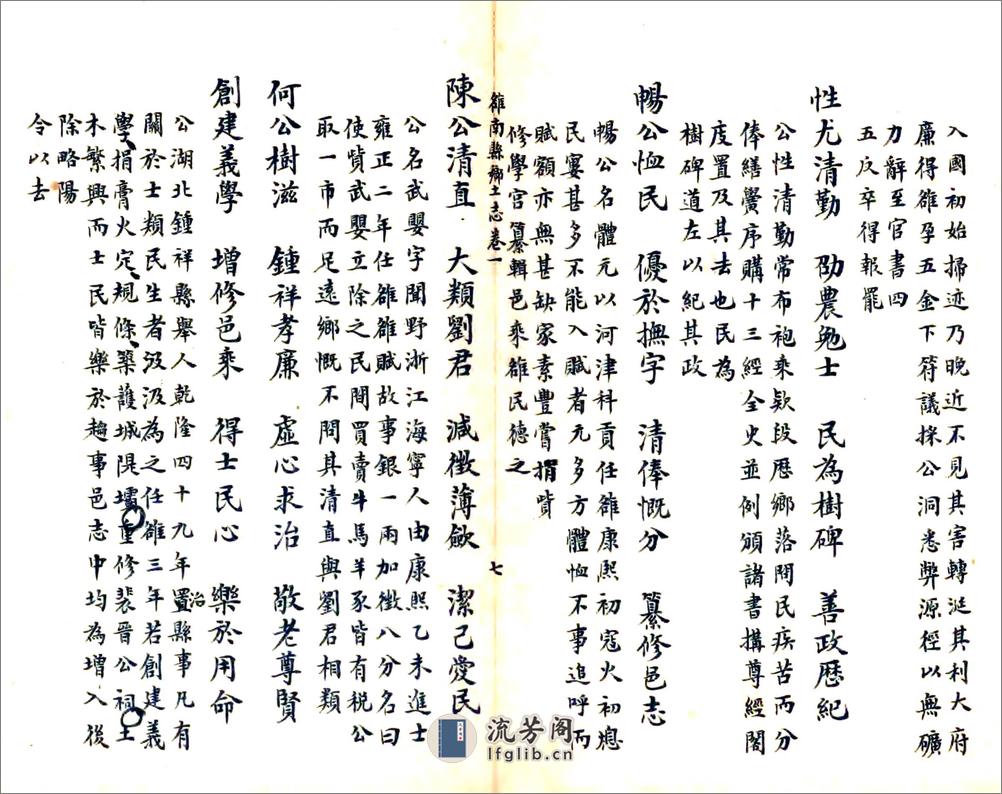 入國初始掃迹乃晚近不見其害轉涎其利大府
廉得雒孕五金下符議採公洞悉弊源徑以無礦
力辭至官書四
五反卒得報罷
性尤清勤　劭農勉士　民為樹碑　善政歷紀
公性清勤常布袍乘款段歷鄉落問民疾苦而分
俸繕黌序購十三經全史並例頒諸書搆尊經閣
度置及其去也民為
樹碑道左以紀其政
暢公恤民　優於撫字　清俸慨分　纂修邑志
暢公名體元以河津科貢任雒康熙初寇火初熄
民寠甚多不能入賦者元多方體恤不事追呼而
賦額亦無甚缺家素豐嘗捐貲
修學宮纂輯邑乘雒民德之
雒南縣鄉土志卷一　七
陳公清直　大類劉君　減徵薄歛　潔己愛民
公名武嬰字聞野浙江海寧人由康熙乙未進士
雍正二年任雒雒賦故事銀一兩加徵八分名曰
使貲武嬰立除之民間買賣牛馬羊豕皆有税公
取一市而足遠鄉慨不問其清直與劉君相類
何公樹滋　鍾祥孝廉　虛心求治　敬老尊賢
創建義學　增修邑乘　得士民心　樂於用命
公湖北鍾祥縣舉人乾隆四十九年置治縣事凡有
關於士類民生者汲汲為之任雒三年若創建義
學捐膏火定規條築護城隄壩重修裴晉公祠土
木繁興而士民皆樂於趨事邑志中均為增入後
除略陽
令以去
流芳阁
lfglib.cn